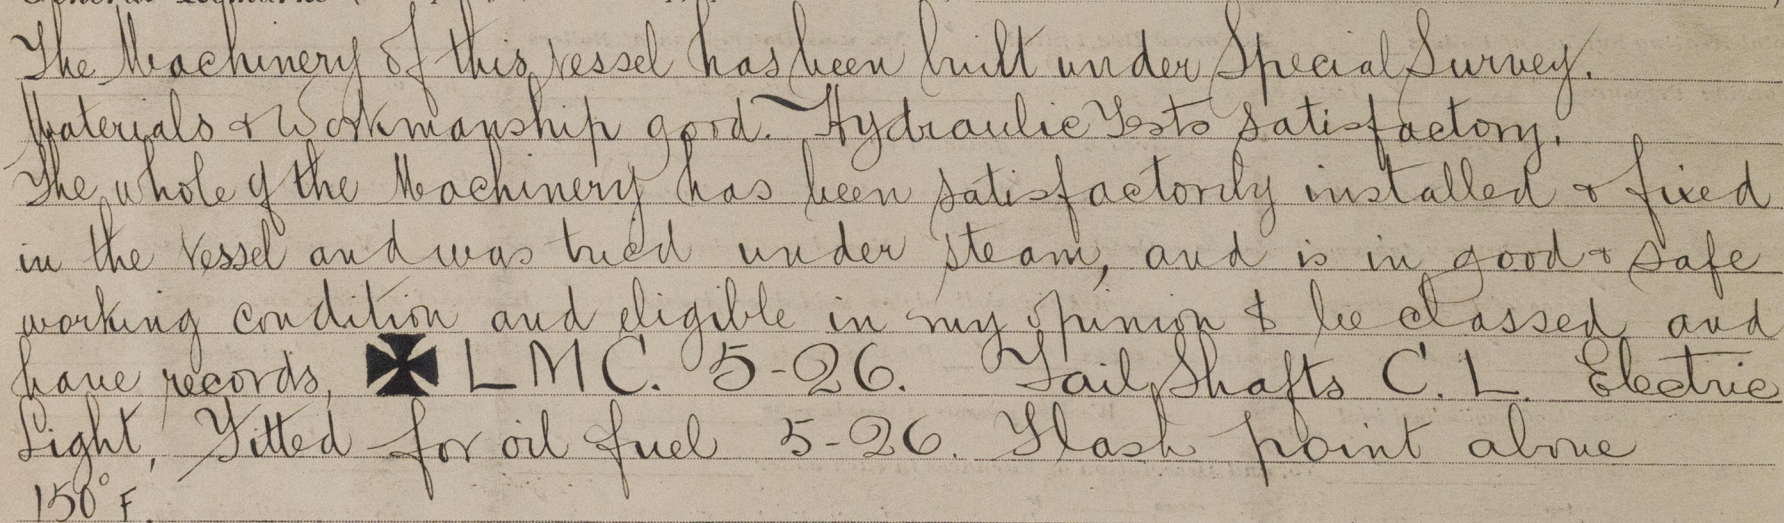 The Machinery of this vessel has been built under Special Survey.
Materials & Workmanship good. Hydraulic Tests satisfactory.
The whole of the Machinery has been satisfactorily installed & fixed
in the vessel and was tried under steam, and is in good & safe
working condition and eligible in my opinion to be classed and
have records, ✠ LMC. 5-26. Tail Shafts C.L. Electric
Light, Fitted for oil fuel 5-26. Flash point above
150° F.